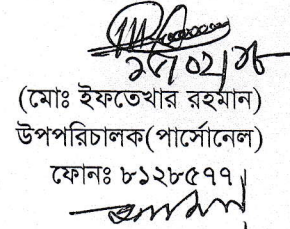 (মোঃ ইফতেখার রহমান)
উপপরিচালক(পার্সোনেল)
ফোনঃ ৮১২৮৫৭৭